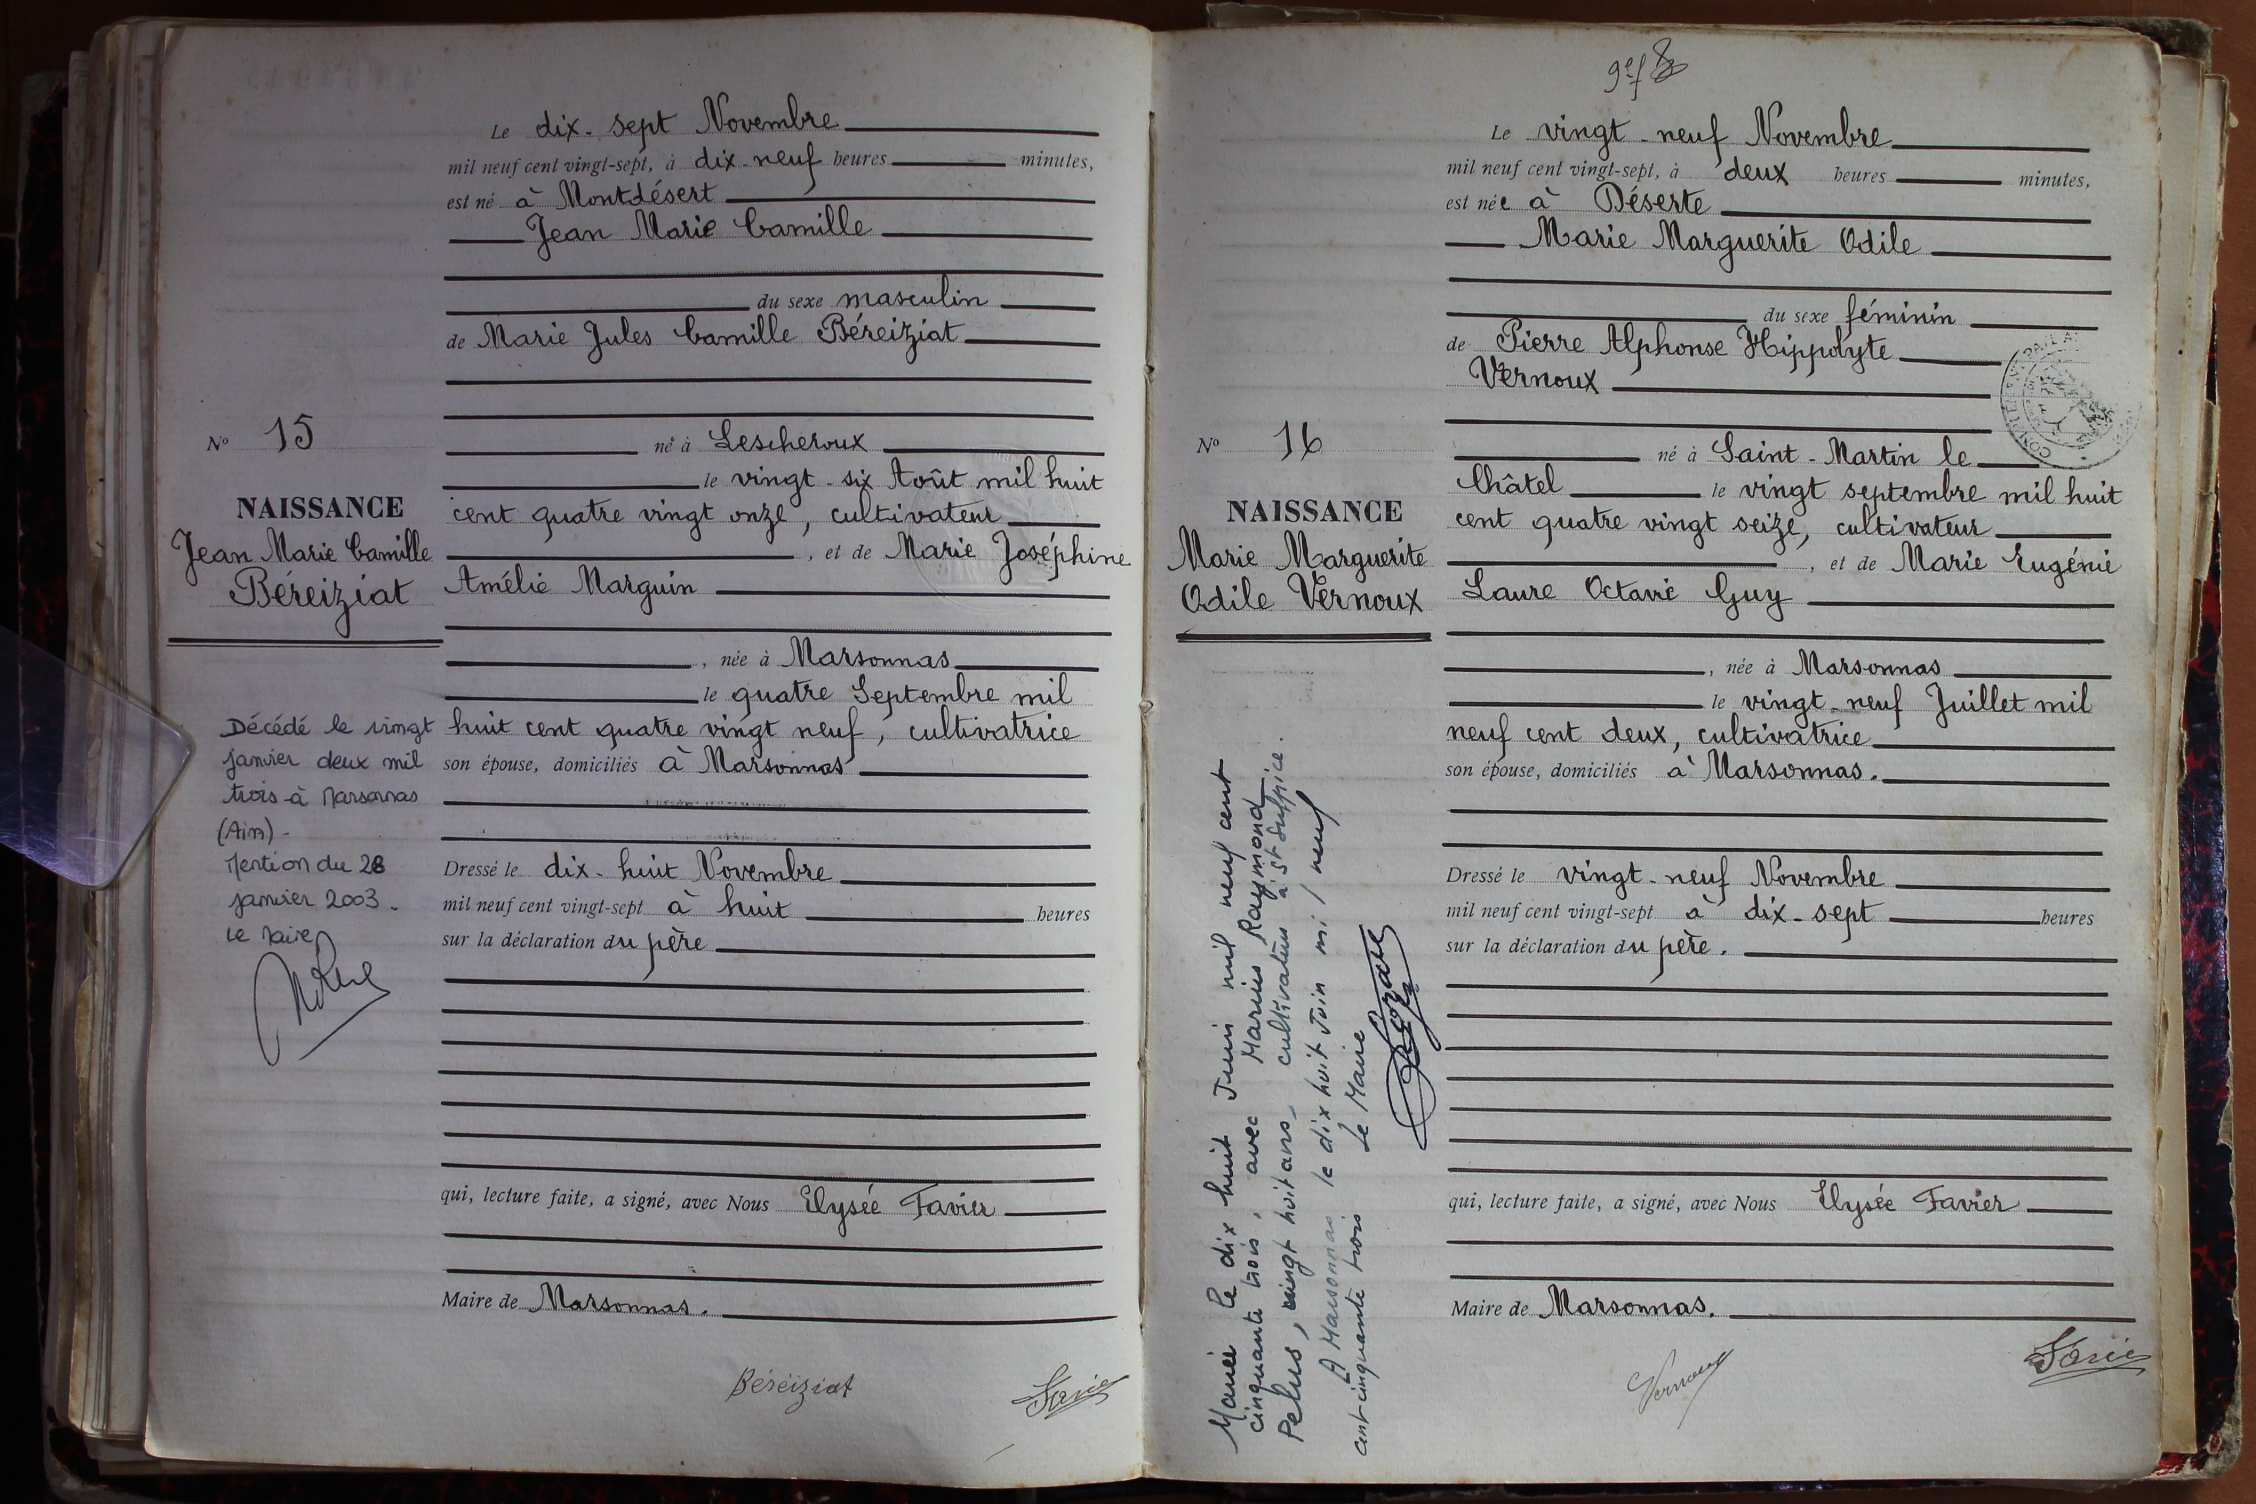 Le dix-sept Novembre
mil neuf cent vingt-sept, à dix-neuf heures minutes,
est né à Montdésert
Jean Marie Camille
du sexe masculin
de Marie Jules Camille Béreiziat
N° 15
né à Lescheroux
le vingt-six Août mil huit
NAISSANCE
cent quatre vingt onze, cultivateur
Jean Marie Camille
, et de Marie Joséphine
Béreiziat
Amélie Marguin
, née à Marsonnas
le quatre Septembre mil
Décédé le vingt
janvier deux mil
trois à Marsonnas
(Ain) -
Mention du 28
janvier 2003.
Le Maire
huit cent quatre vingt neuf, cultivatrice
son épouse, domiciliés à Marsonnas
Dressé le dix-huit Novembre
mil neuf cent vingt-sept à huit heures
sur la déclaration du père
qui, lecture faite, a signé, avec Nous Elysée Favier
Maire de Marsonnas.
Béréiziat
Le vingt-neuf Novembre
mil neuf cent vingt-sept, à deux heures minutes,
est née à Déserte
Marie Marguerite Odile
du sexe féminin
de Pierre Alphonse Hippolyte
Vernoux
N° 16
né à Saint-Martin le
Châtel le vingt septembre mil huit
NAISSANCE
cent quatre vingt seize, cultivateur
Marie Marguerite
, et de Marie Eugénie
Odile Vernoux
Laure Octavie Guy
, née à Marsonnas
le vingt-neuf Juillet mil
neuf cent deux, cultivatrice
son épouse, domiciliés à Marsonnas.
Dressé le vingt-neuf Novembre
mil neuf cent vingt-sept à dix-sept heures
sur la déclaration du père.
qui, lecture faite, a signé, avec Nous Elysée Favier
Maire de Marsonnas.
Vernoux
Mariée le dix huit Juin mil neuf cent
cinquante trois, avec Marius Raymond
Pelus, vingt huit ans, cultivateur à St Sulpice.
A Marsonnas le dix huit Juin mil neuf
cent cinquante trois Le Maire